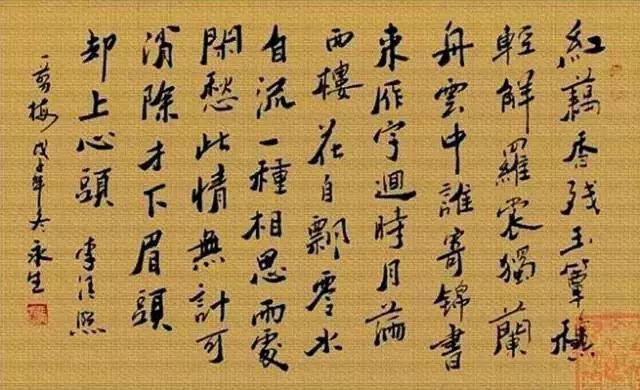 紅藕香残玉簟秋
輕解羅裳獨蘭
舟雲中誰寄錦書
來雁字迴時月滿
西樓花自飄零水
自流一種相思兩處
閑愁此情無計可
消除才下眉頭
却上心頭 李清照
一剪梅 戊子年冬永生